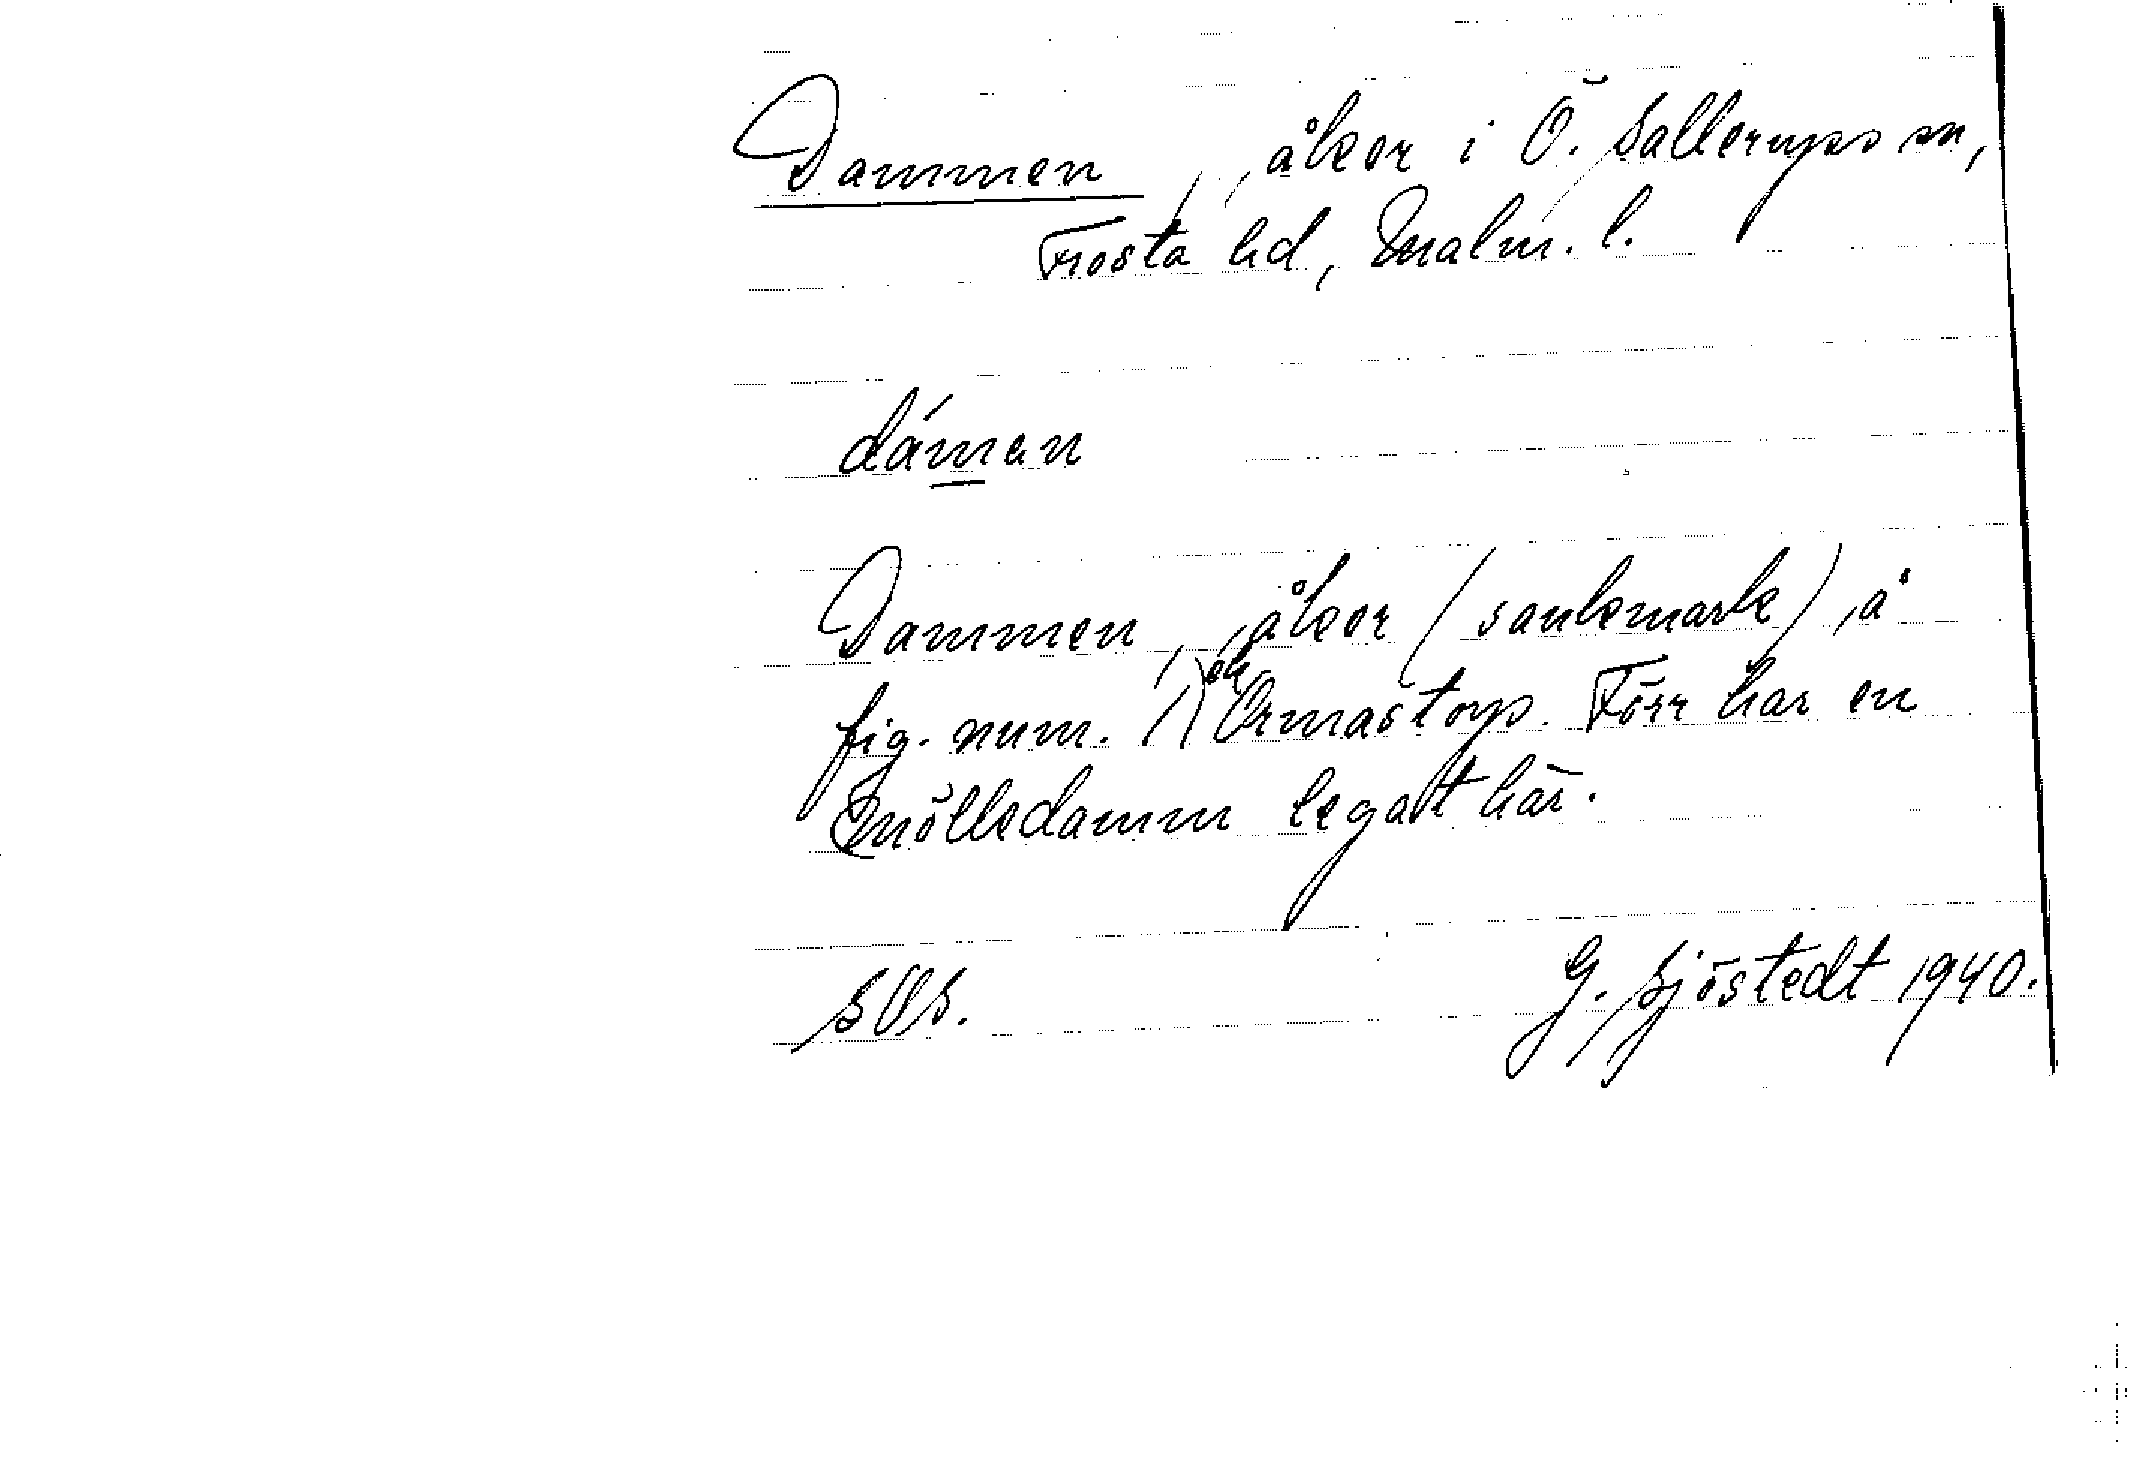 Dammen, åker i Ö. Sallerups sn,
Frosta hd, Malm. l.
dámen
Dammen, åker (sankmark), å
fig. num. 1) ek Ormastorp. Förr har en
mölledamm legat här.
SOS. G. Sjöstedt 1940.